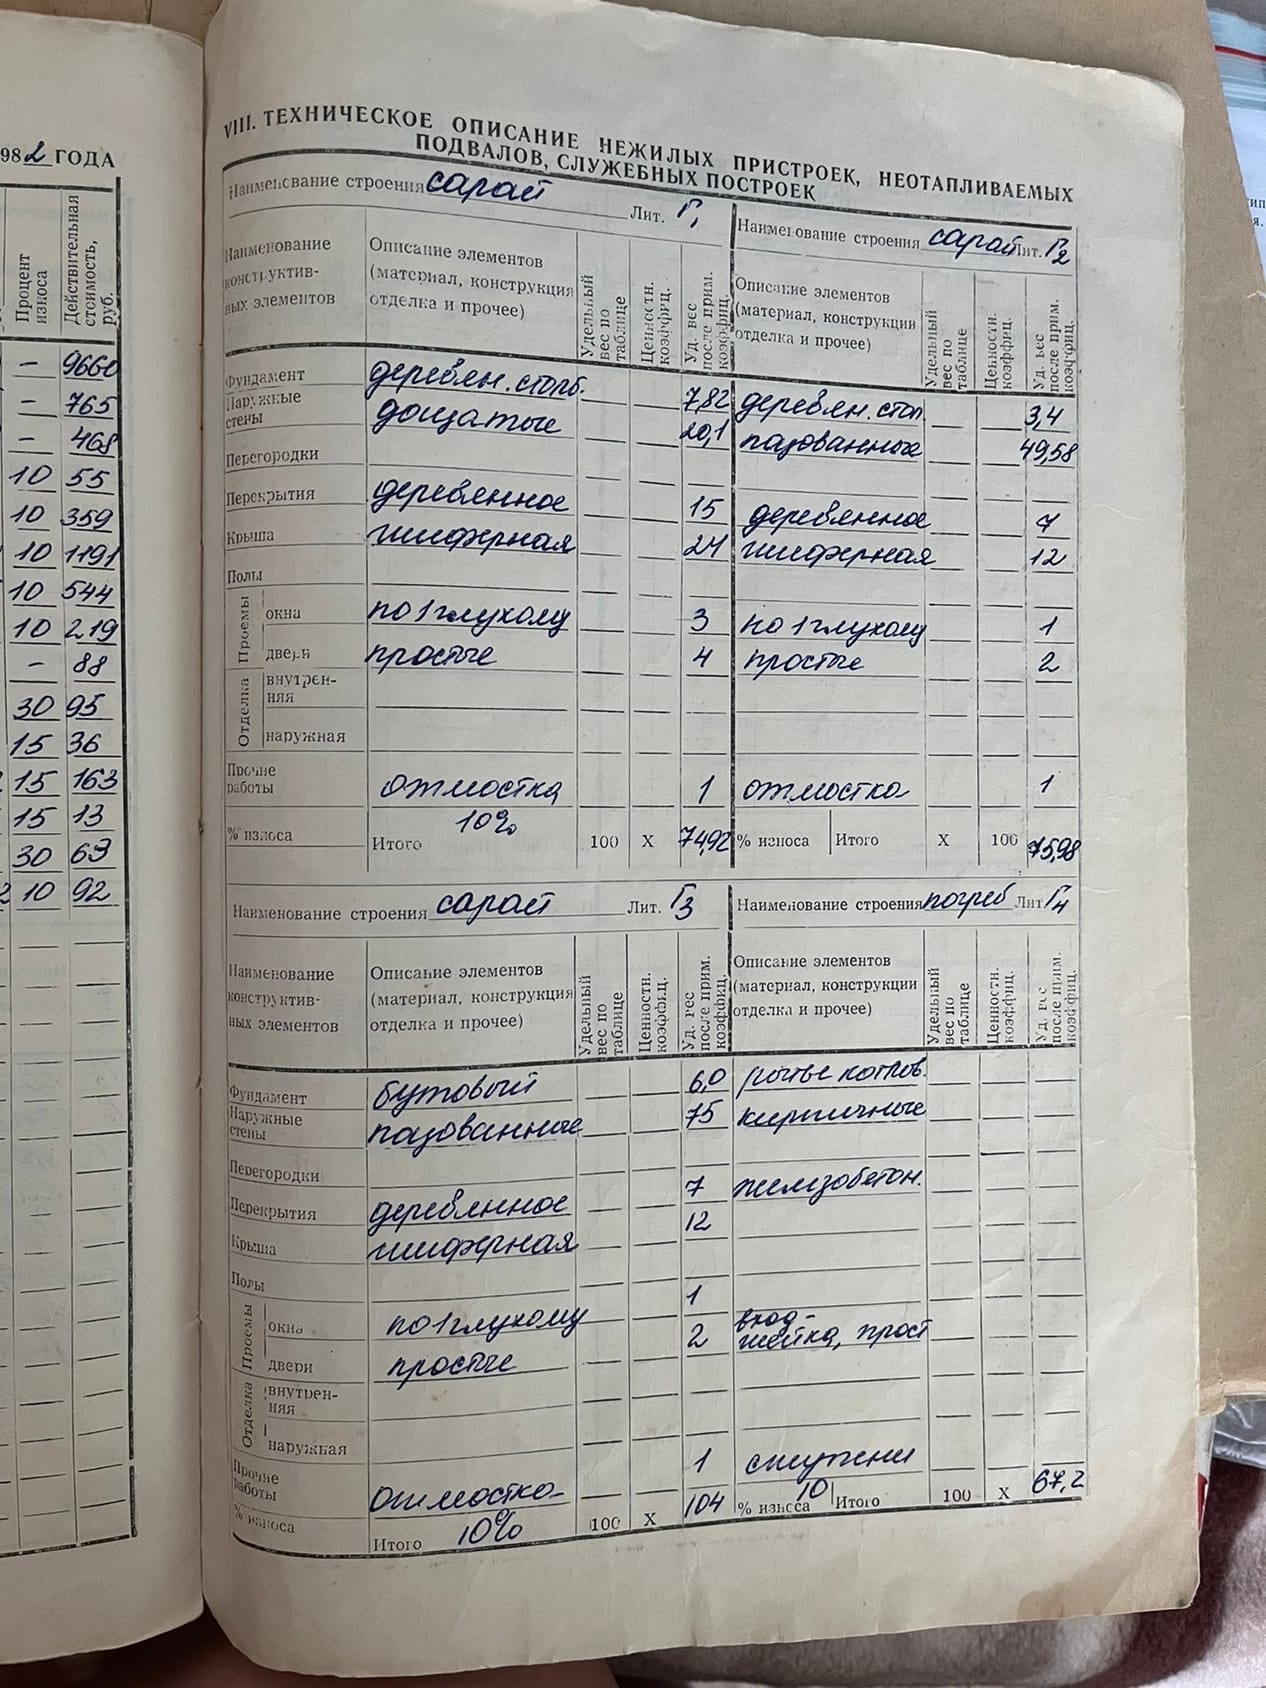 982 ГОДА
Процент износа
Действительная стоимость, руб.
— 9660
— 765
— 468
10 55
10 359
10 1191
10 544
10 219
— 88
30 95
15 36
15 163
15 13
30 69
10 92
VIII. ТЕХНИЧЕСКОЕ ОПИСАНИЕ НЕЖИЛЫХ ПРИСТРОЕК, НЕОТАПЛИВАЕМЫХ
ПОДВАЛОВ, СЛУЖЕБНЫХ ПОСТРОЕК
Наименование строения сарай Лит. Г1
Наименование строения сарай Лит. Г2
Наименование конструктив-
ных элементов
Описание элементов
(материал, конструкция
отделка и прочее)
Удельный вес по таблице
Ценностн. коэффиц.
Уд. вес после прим. коэффиц.
Описание элементов
(материал, конструкции
отделка и прочее)
Удельный вес по таблице
Ценности. коэффиц.
Уд. вес после прим. коэффиц.
Фундамент деревян. столб. 7,82 деревян. стол. 3,4
Наружные стены дощатые 20,1 пазованные 49,58
Перегородки
Перекрытия деревянное 15 деревянное 7
Крыша шиферная 24 шиферная 12
Полы
Проемы окна по 1 глухому 3 по 1 глухому 1
двери простые 4 простые 2
Отделка внутрен-
няя
наружная
Прочие работы отмостка 1 отмостка 1
% износа 10% Итого 100 X 74,92 % износа Итого X 100 75,98
Наименование строения сарай Лит. Г3
Наименование строения погреб Лит Г4
Наименование
конструктив-
ных элементов
Описание элементов
(материал, конструкция
отделка и прочее)
Удельный вес по таблице
Ценностн. коэффиц.
Уд. вес после прим. коэффиц.
Описание элементов
(материал, конструкции
отделка и прочее)
Удельный вес по таблице
Ценностн. коэффиц.
Уд. вес после прим. коэффиц.
Фундамент бутовый 6,0 рытье котлов.
Наружные стены пазованные 75 кирпичные
Перегородки
Перекрытия деревянное 7 железобетон.
Крыша шиферная 12
Полы
Проемы окна по 1 глухому 1 вход-
двери простые 2 шейка, прост
Отделка внутрен-
няя
наружная
Прочие работы отмостка 1 ступени
% износа Итого 10% 100 X 104 % износа 10 Итого 100 X 67,2